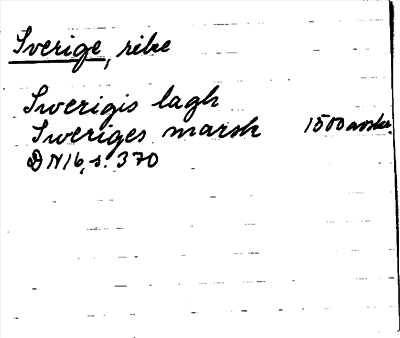 Sverige, rike
Swerigis lagh
Sweriges marsk 1500 avskr.
DN16, s. 370